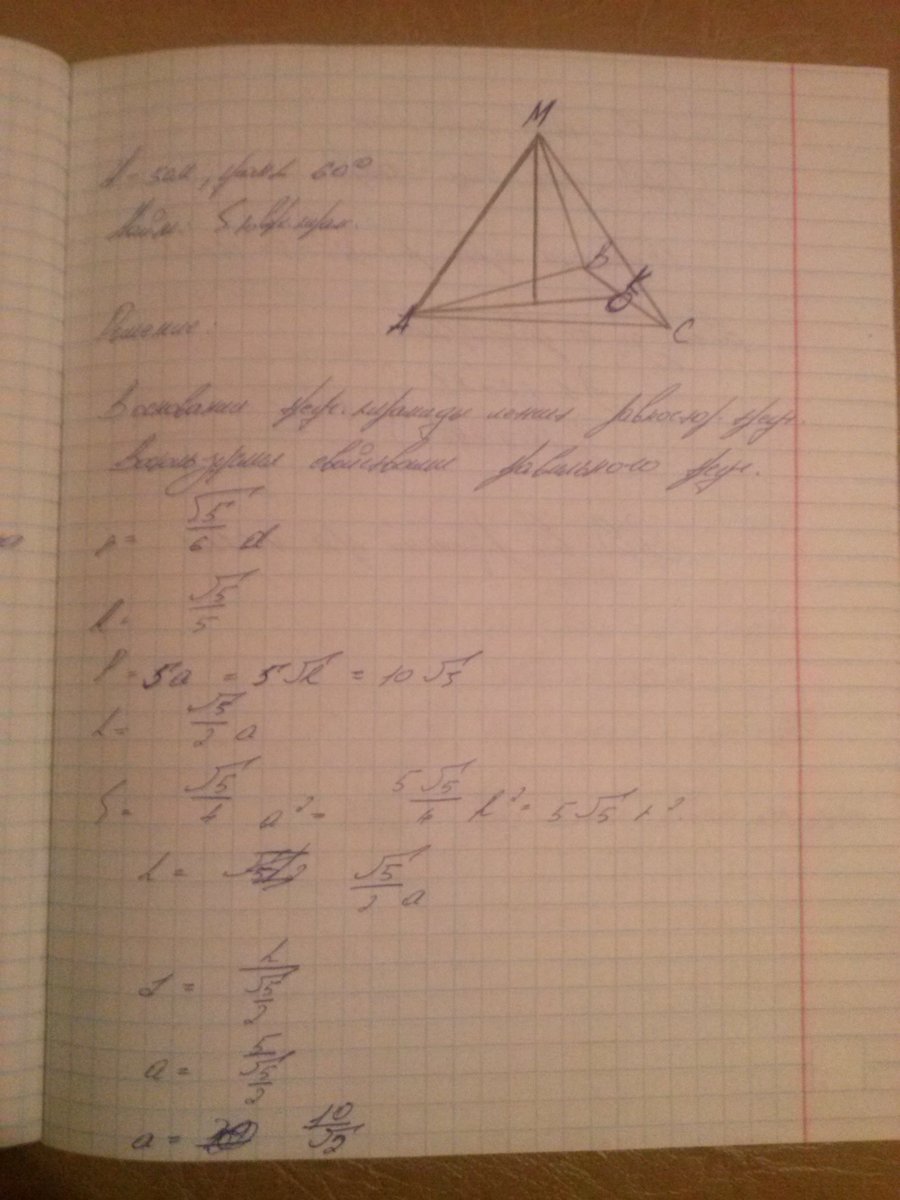 M
60°
Найти: S
Решение:
A B K O C
В основании треуг. пирамиды лежит равностор. треуг.
Воспользуемся свойствами правильного треуг.
r = √5/6 a
R = √5/5
P = 5a = 5√R = 10√5
h = √5/2 a
S = √5/4 a² = 5√5/4 R² = 5√5 r²
h = √5/2 a
a = h/(√5/2)
a = 5/(√5/2)
a = 10/√2